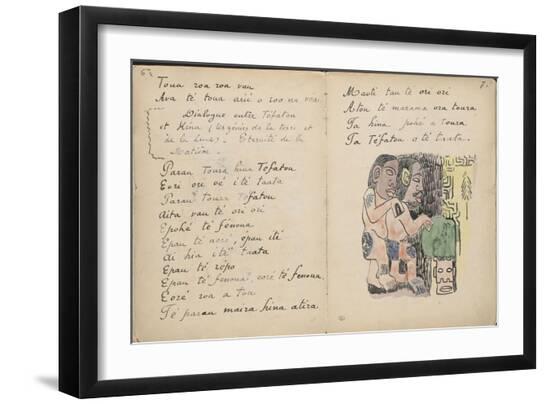 6.
Toua roa roa vau
Ava té toua arii o roo na vau
Dialogue entre Téfatou
et Hina (les génies de la terre et
de la lune). Eternité de la
Matière.
Parau Toura hina Tefatou
Eori ore vé ité taata
Parau Toura Tefatou
Aita vau té ori ori
Epohé té fénoua
Epau té , épau ité
Ai hia ité taata
Epau té répo
Epau té fénoua, eoré té fénoua
Eoré roa a tou
Té parau maira hina atira.
7.
Maoti tau té ori ori
Atou té marama ora toura
Ta hina pohé a toura
Ta Téfatou o té taata.